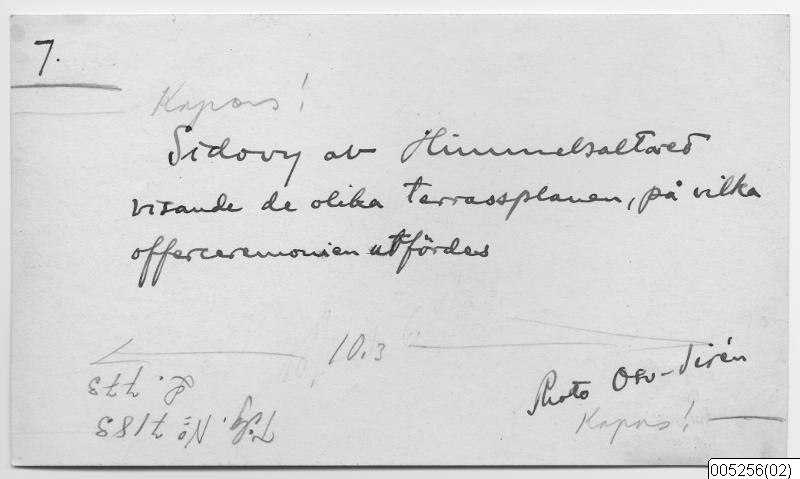 7.
Kapas!
Sidovy av Himmelsaltaret
visande de olika terrassplanen, på vilka
offerceremonien utfördes
10.3
Photo Osv-Sirén
Kapas!
Tdg. No: 7183
L. 773
005256(02)